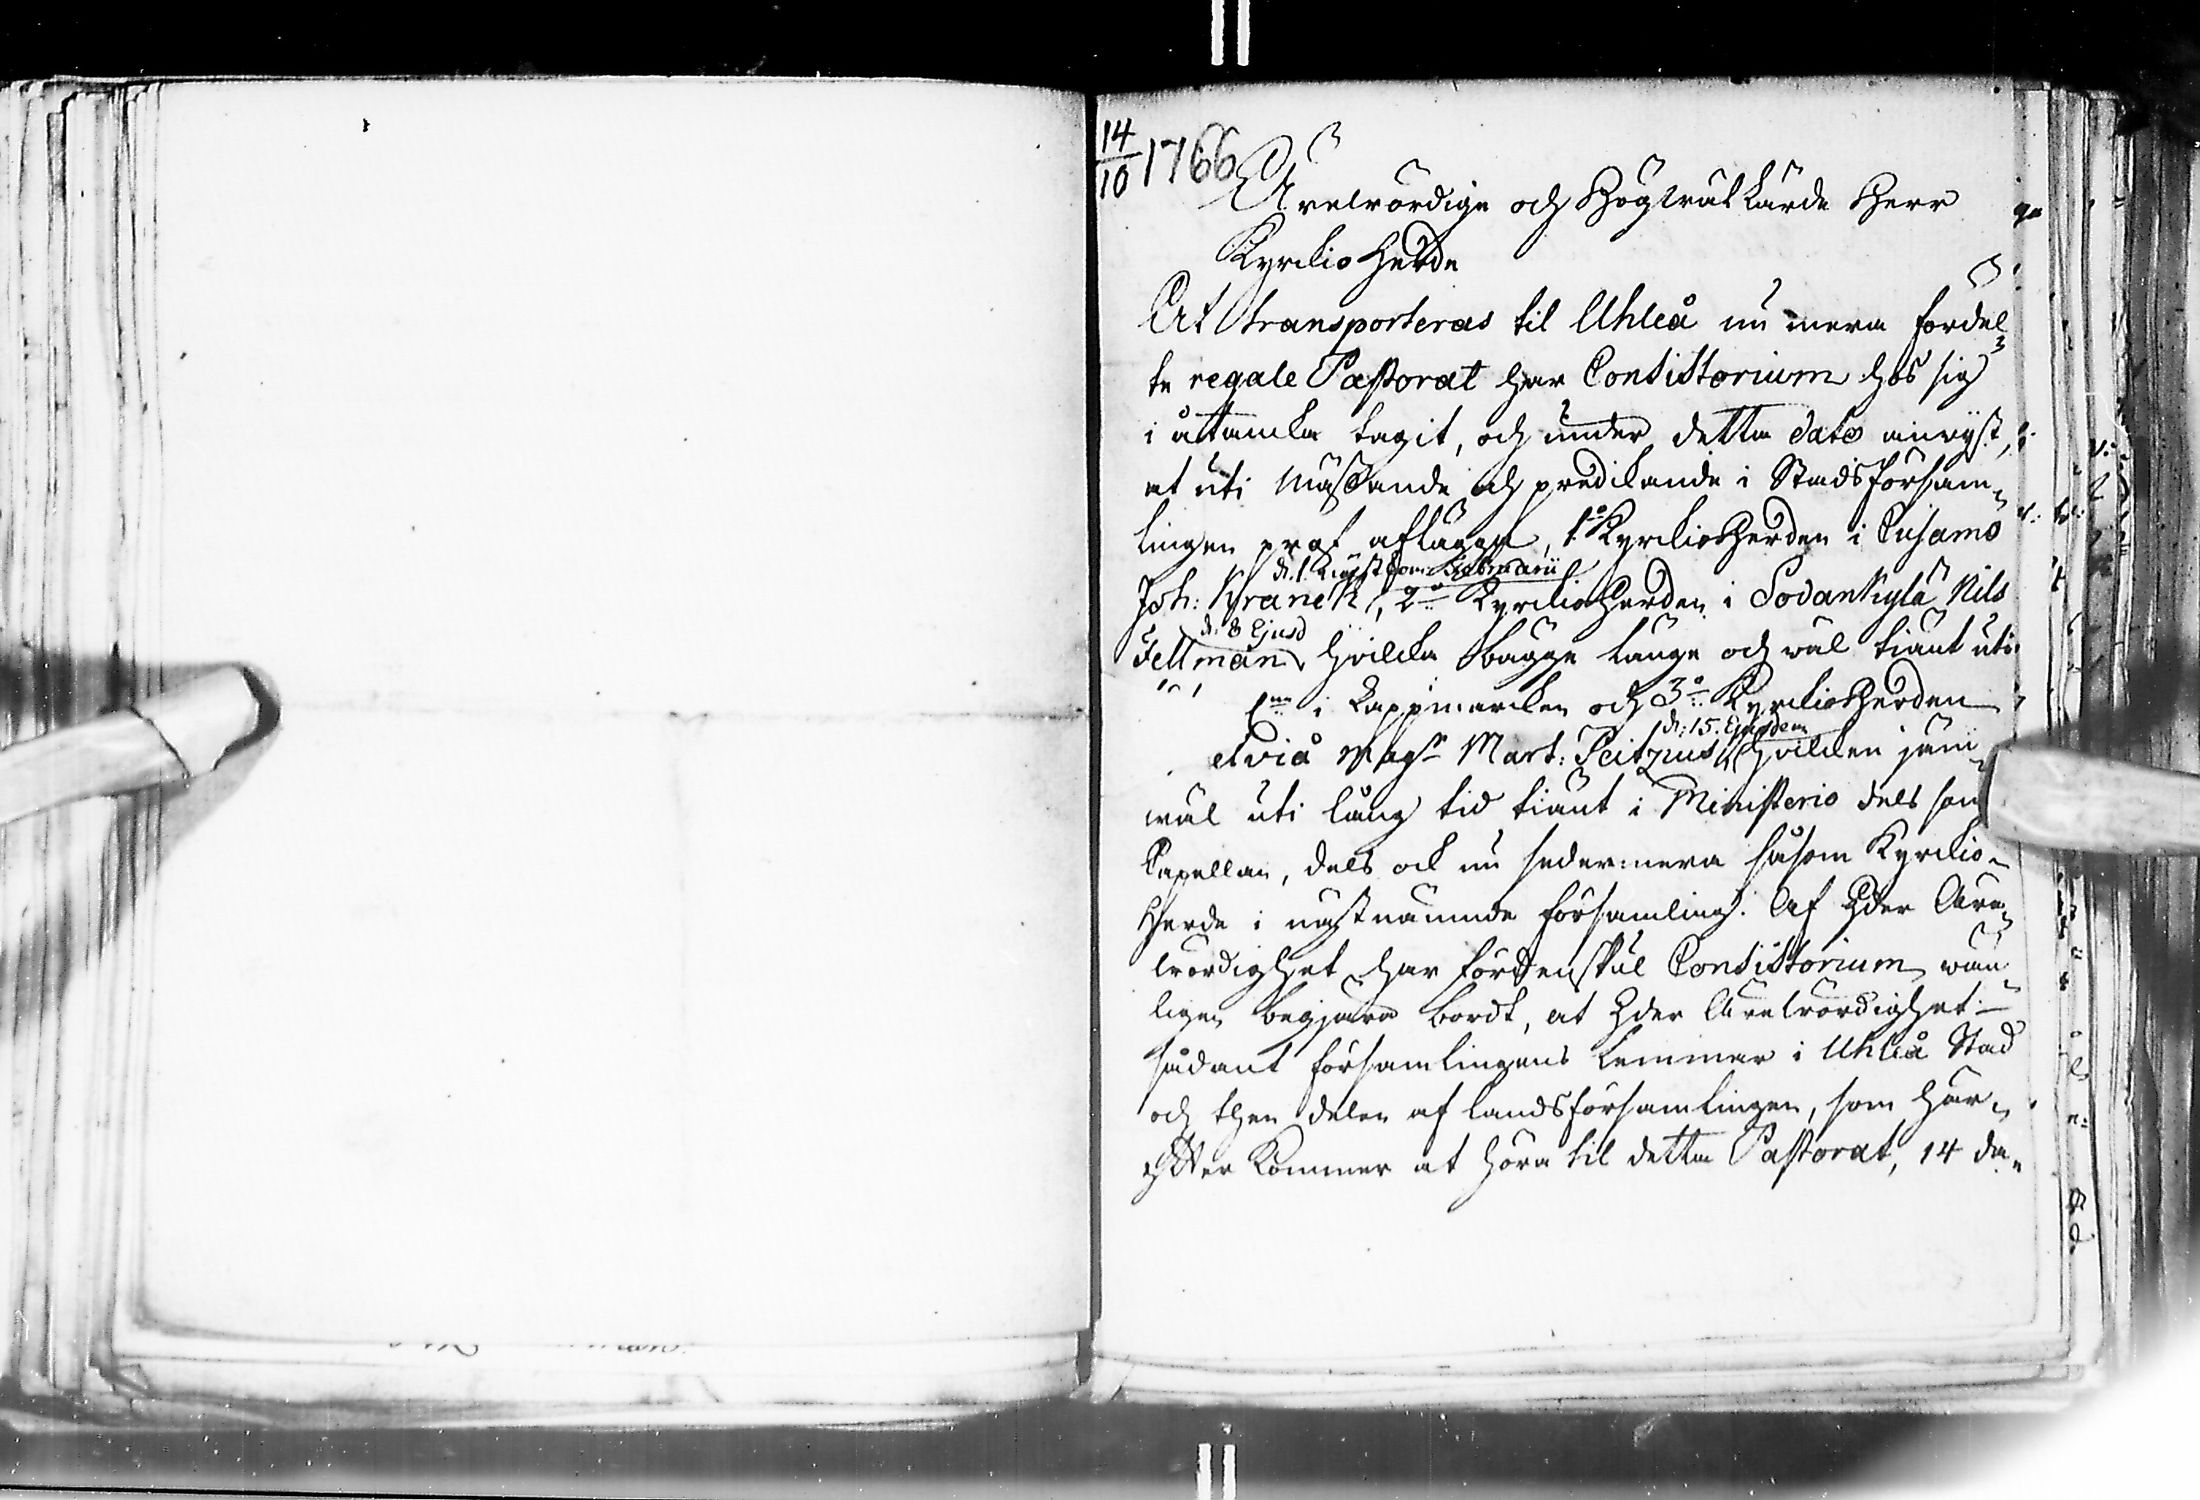 14/10 1766
Ärewördige och Höglärde Herr
Kyrckio Herde
At transporteras til Uhleå nu mera fördel¬
te regale Pastorat har Consistorium hos sig
i åtancka tagit, och under detta dato anvist,
at uti mässande och predikande i Stads Försam¬
lingen prof aflägga, 1o Kyrckio Herden i Cusamo
d. 1. Februarii
Joh: Kranck, 2o Kyrckio Herden i Sodankylä Nils
d: 8 Ejusd
Fellman, hvilcka bägge länge och wäl tiänt uti
i Lappmarcken och 3o Kyrckio Herden
d: 15. Ejusdem
elviå Magr Mart: Peitzius, hvilcken jäm¬
wäl uti lång tid tiänt i Ministerio dels som
Capellan, dels ock nu sedermera såsom Kyrckio¬
Herde i nästnämnde församling. Af Eder Äre¬
wördighet har fördenskul Consistorium wän¬
ligen begjära bordt, at Eder Ärewördighet
sådant församlingens Lemmar i Uhleå Stad
och then delen af landsförsamlingen, som här¬
efter kommer at höra til detta Pastorat, 14 da¬